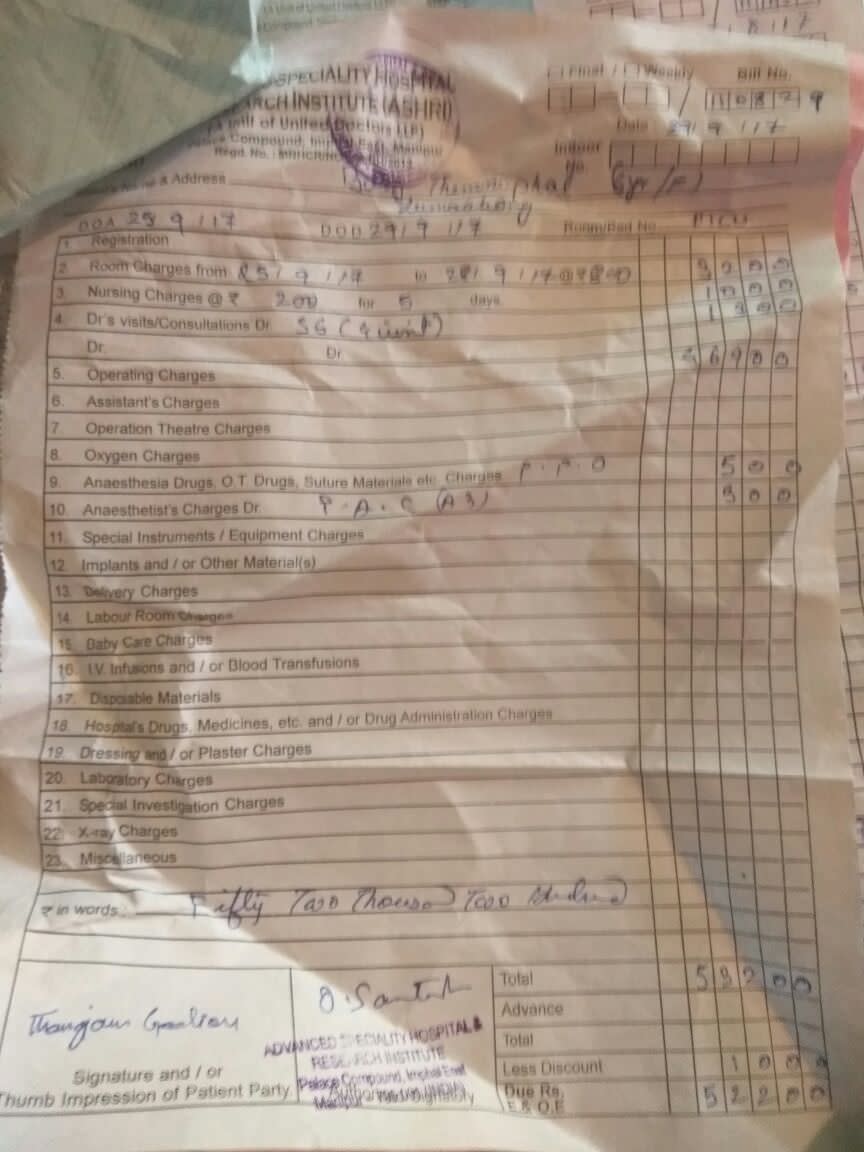 SPECIALITY HOSPITAL
ARCH INSTITUTE (ASHRI)
(A unit of United Doctors LLP)
Compound, Imphal East, Manipur
Regd. No.
Final / Weekly Bill No.
Date 29/9/17
Indoor No.
& Address
6yr/F)
DOA 25/9/17 DOD 29/9/17 Room/Bed No.
1. Registration
2. Room Charges from 25/9/17 to
3. Nursing Charges @ ₹ 200 for 5 days 1000
4. Dr's visits/Consultations Dr. SG
Dr. Dr.
5. Operating Charges
6. Assistant's Charges
7. Operation Theatre Charges
8. Oxygen Charges
9. Anaesthesia Drugs, O.T. Drugs, Suture Materials etc. Charges 500
10. Anaesthetist's Charges Dr. P.A.C 300
11. Special Instruments / Equipment Charges
12. Implants and / or Other Material(s)
13. Delivery Charges
14. Labour Room Charges
15. Baby Care Charges
16. I.V. Infusions and / or Blood Transfusions
17. Disposable Materials
18. Hospital's Drugs, Medicines, etc. and / or Drug Administration Charges
19. Dressing and / or Plaster Charges
20. Laboratory Charges
21. Special Investigation Charges
22. X-ray Charges
23. Miscellaneous
₹ in words : Fifty Two Thousand Two Hundred
Total 53200
Advance
Total
Less Discount 1000
Due Rs. 52200
E & O.E
ADVANCED SPECIALITY HOSPITAL &
RESEARCH INSTITUTE
Palace Compound, Imphal East
Signature and / or
Thumb Impression of Patient Party